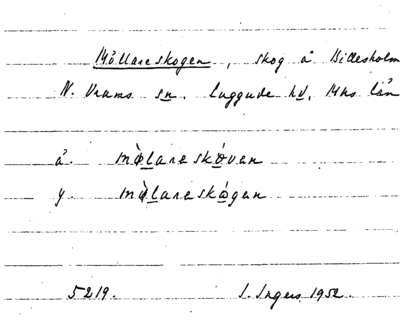 Möllareskogen, skog å Billesholm
N. Vrams sn. Luggude hd, Mhs län
ä. mø̀lareskøven
y. mø̀lareskógen
5219. I. Ingers 1952.